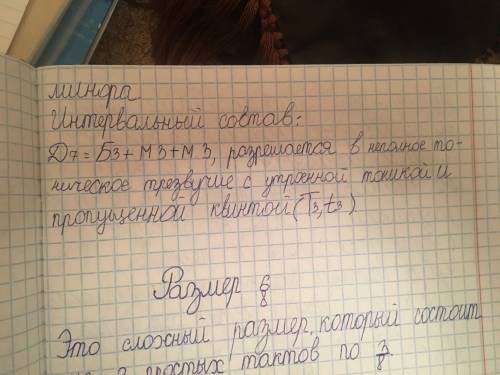 минора
Интервальный состав:
Д7 = Б3 + М3 + М3, разрешается в неполное то-
ническое трезвучие с утроенной тоникой и
пропущенной квинтой (Т3, t3)
Размер 6/8
Это сложный размер, который состоит
из 2 простых тактов по 3/8.